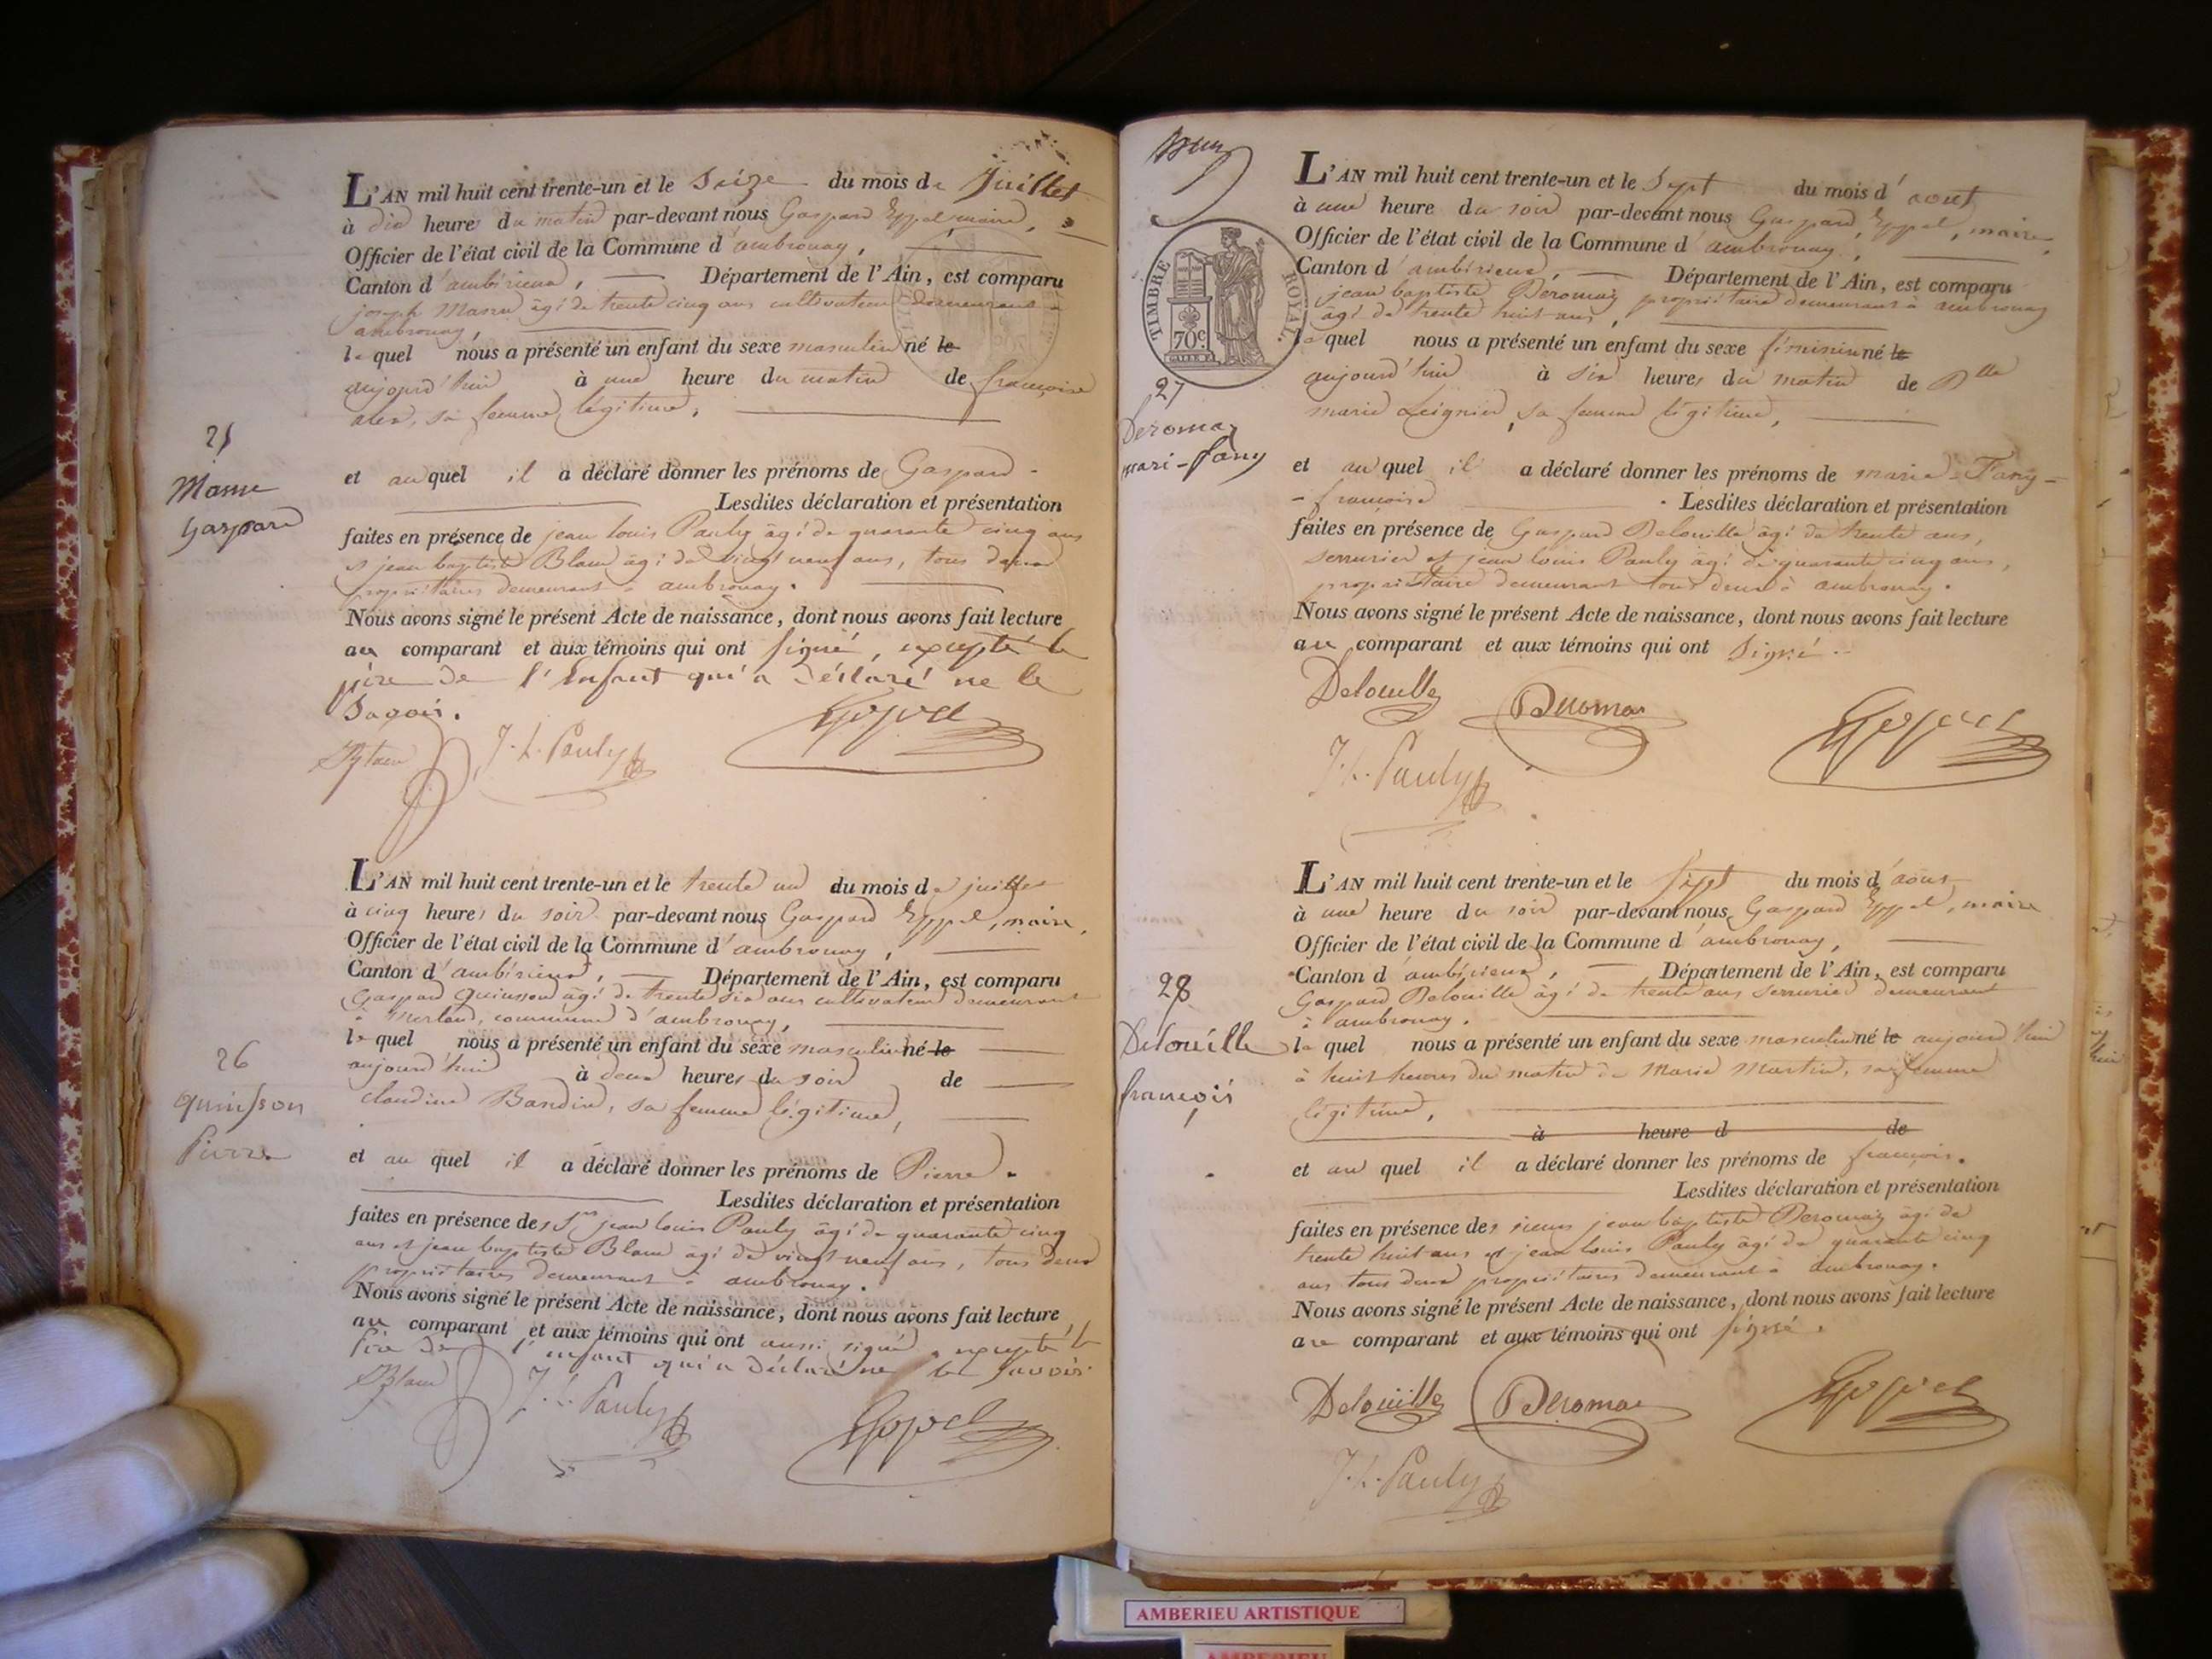 L'AN mil huit cent trente-un et le Seize du mois de Juillet
à dix heures du matin par-devant nous Gaspard Eppel, maire,
Officier de l'état civil de la Commune d'ambronay,
Canton d'ambérieux, Département de l'Ain, est comparu
joseph agé de trente cinq ans cultivateur demeurant à
ambronay,
lequel nous a présenté un enfant du sexe masculin né le
aujourd'hui à une heure du matin de françoise
sa femme légitime,
25
Gaspard
et auquel il a déclaré donner les prénoms de Gaspard
Lesdites déclaration et présentation
faites en présence de jean louis Pauly âgé de quarante cinq ans
et jean baptiste Blanc âgé de vingt neuf ans, tous deux
propriétaires demeurant à ambronay.
Nous avons signé le présent Acte de naissance, dont nous avons fait lecture
au comparant et aux témoins qui ont signé, excepté le
père de l'Enfant qui a déclaré ne le
Savoir.
J. L. Pauly
L'AN mil huit cent trente-un et le trente un du mois de juillet
à cinq heures du soir par-devant nous Gaspard Eppel, maire,
Officier de l'état civil de la Commune d'ambronay,
Canton d'ambérieux, Département de l'Ain, est comparu
Gaspard Quinson âgé de trente six ans cultivateur demeurant
à merland, commune d'ambronay,
lequel nous a présenté un enfant du sexe masculin né le
aujourd'hui à deux heures du soir de
claudine Bandin, sa femme légitime,
26
quinson
Pierre
et auquel il a déclaré donner les prénoms de Pierre.
Lesdites déclaration et présentation
faites en présence des Srs jean louis Pauly âgé de quarante cinq
ans et jean baptiste Blanc âgé de vingt neuf ans, tous deux
propriétaires demeurant à ambronay.
Nous avons signé le présent Acte de naissance, dont nous avons fait lecture
au comparant et aux témoins qui ont aussi signé, excepté le
Père de l'enfant qui a déclaré ne le savoir
Blanc J. L. Pauly
TIMBRE ROYAL
70c
L'AN mil huit cent trente-un et le Sept du mois d'aout
à une heure du soir par-devant nous Gaspard Eppel, maire,
Officier de l'état civil de la Commune d'ambronay,
Canton d'ambérieux, Département de l'Ain, est comparu
jean baptiste Deromas propriétaire demeurant à ambronay
âgé de trente huit ans,
lequel nous a présenté un enfant du sexe féminin né le
aujourd'hui à six heures du matin de Dlle
marie Leignier, sa femme légitime,
27
Deromas
mari-fany
et auquel il a déclaré donner les prénoms de marie-Fany-
-françoise Lesdites déclaration et présentation
faites en présence de Gaspard Delouille âgé de trente ans,
serrurier et jean louis Pauly âgé de quarante cinq ans,
propriétaire demeurant tous deux à ambronay.
Nous avons signé le présent Acte de naissance, dont nous avons fait lecture
au comparant et aux témoins qui ont signé.
Delouille Deromas
J. L. Pauly
L'AN mil huit cent trente-un et le sept du mois d'aout
à une heure du soir par-devant nous Gaspard Eppel, maire
Officier de l'état civil de la Commune d'ambronay,
Canton d'ambérieux, Département de l'Ain, est comparu
Gaspard Delouille âgé de trente ans serrurier demeurant
à ambronay.
lequel nous a présenté un enfant du sexe masculin né le aujourd'hui
à huit heures du matin de Marie Martin, sa femme
légitime,
à heure d de
28
Delouille
françois
et auquel il a déclaré donner les prénoms de françois.
Lesdites déclaration et présentation
faites en présence des sieurs jean baptiste Deromas âgé de
trente huit ans et jean louis Pauly âgé de quarante cinq
ans tous deux propriétaires demeurant à ambronay.
Nous avons signé le présent Acte de naissance, dont nous avons fait lecture
au comparant et aux témoins qui ont signé.
Delouille Deromas
J. L. Pauly
AMBERIEU ARTISTIQUE
AMBERIEU